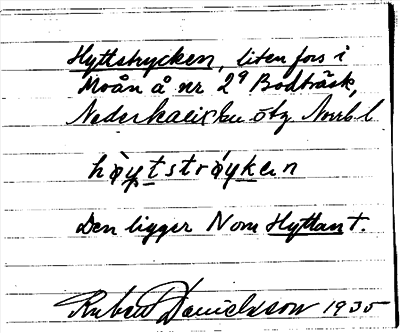 Hyttstrycken, liten fors i
Moån å nr 2⁹ Bodträsk,
Nederkalix ku ötg Norrb l
höytströyken
Den ligger N om Hyttan t.
Rubert Danielsson 1935